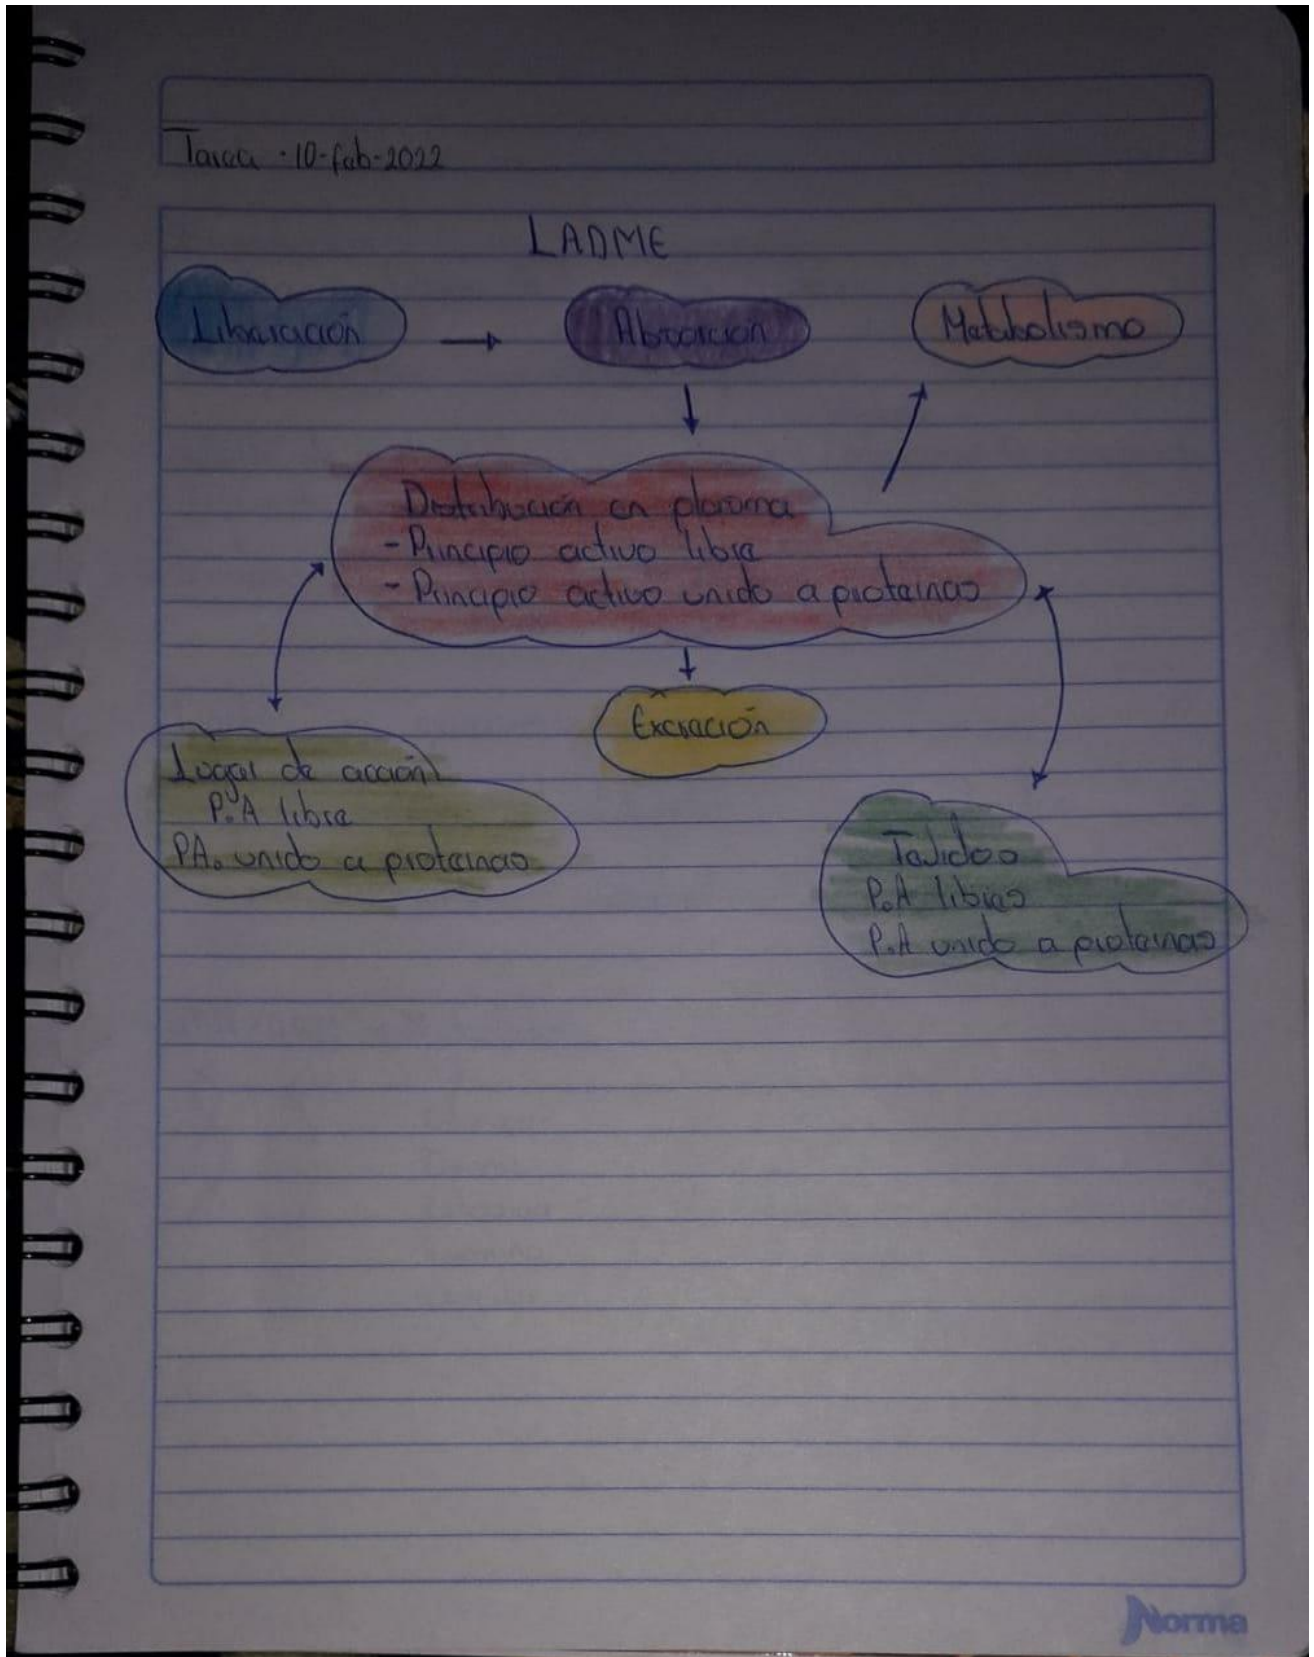 Tarea · 10-feb-2022
LADME
Liberación
Absorción
Metabolismo
Distribución en plasma
- Principio activo libre
- Principio activo unido a proteínas
Excreción
Lugar de acción
P.A libre
PA. unido a proteínas
Tejidos
P.A libres
P.A unido a proteínas
Norma